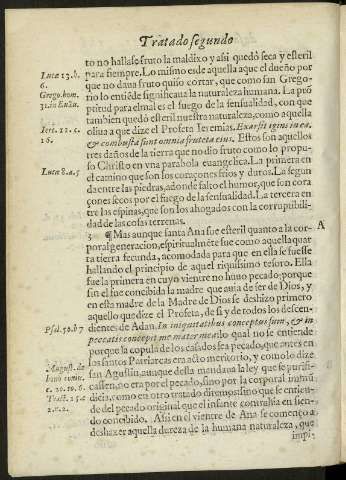 Tratado segundo
to no hallasse fruto la maldixo y assi quedó seca y esteril
para siempre. Lo mismo es de aquella aque el dueño por
que no daua fruto quiso cortar, que como san Grego-
rio lo entiēde significaua la naturaleza humana. La prō
ptitud para el mal es el fuego de la sensualidad, con que
tambien quedó esteril nuestra naturaleza; como aquella
oliua a que dize el Profeta Ieremias. Exarsit ignis in ea,
& combusta sunt omnia fruteta eius. Estos son aquellos
tres daños de la tierra que no dio fruto como lo propu-
so Christo en vna parabola euangelica. La primera en
el camino que son los coraçones frios y duros. La segun
da entre las piedras, adonde falto el humor, que son cora
çones secos por el fuego de la sensualidad. La tercera en
tre las espinas, que son los ahogados con la corruptibili-
dad de las cosas terrenas.
3 ¶ Mas aunque santa Ana fue esteril quanto a la cor-
poral generacion, espiritualmēte fue como aquella quar
ta tierra fecunda, acomodada para que en ella se fuesse
hallando el principio de aquel riquissimo tesoro. Ella
fue la primera en cuyo vientre no huuo pecado: porque
sin el fue concebida la madre que auia de ser de Dios, y
en esta madre de la Madre de Dios se deshizo primero
aquello que dize el Profeta, de si y de todos los descen-
dientes de Adan. In iniquitatibus conceptus sum, & in
peccatis concepit me mater mea: lo qual no se entiende
porque la copula de los casados sea pecado, que antes en
los santos Patriarcas era acto meritorio, y como lo dize
san Agustin, aunque despues mandaua la ley que se purifi-
cassen, no era por el pecado, sino por la corporal inmū
dicia, como en otro tratado diremos sino que se entien-
de del pecado original que el infante contrahia en sien-
do concebido. Assi en el vientre de Ana se començo a
deshazer aquella dureza de la humana naturaleza, que
impi-
Lucæ 13. b.
6.
Grego. hom.
31. in Euāg.
Iere. 11. c.
16.
Lucæ 8. a. 5
A
Psal. 50. b 7
August. de
bono coniu.
c. 20. to. 6.
Tract. 5. 4
2. c. 2.